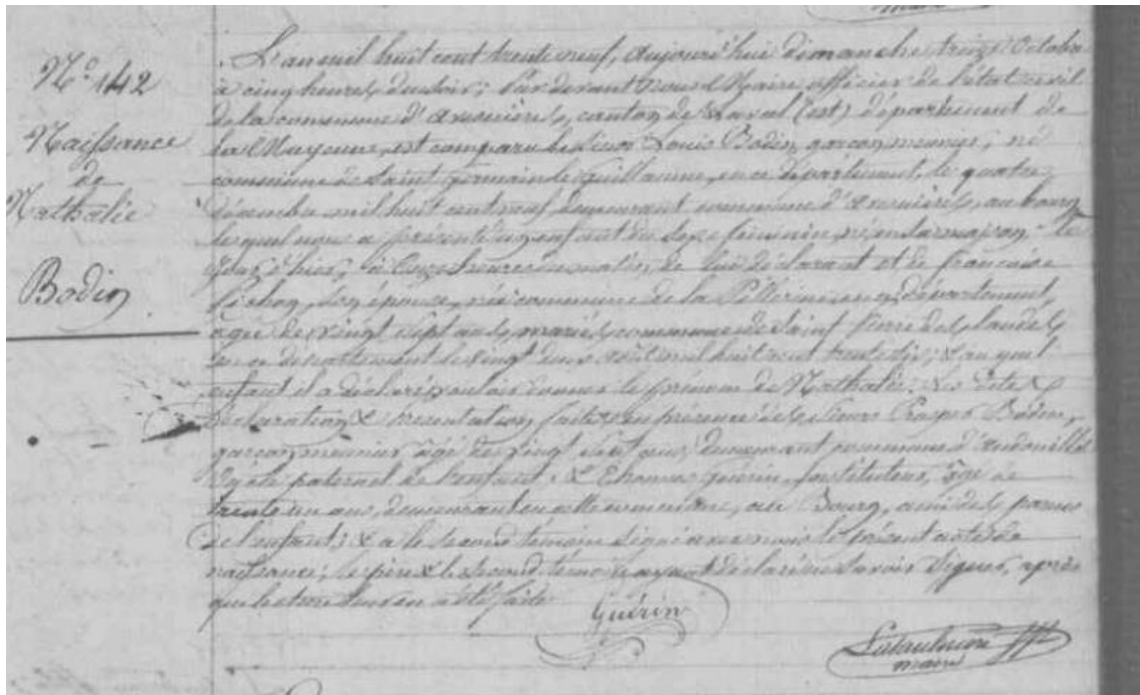 maire
N.° 142
Naissance
de
Nathalie
Bodin
L'an mil huit cent trente neuf, aujourd'hui dimanche treize Octobre
à cinq heures du soir; Par devant nous Maire officier de l'état civil
de la commune d'avenières, canton de Laval (est) département de
la Mayenne, est comparu le sieur Louis Bodin, garçon meunier, né
commune de Saint germain le Guillaume, en ce département, le quatre
décembre mil huit cent neuf, demeurant commune d'avenières, au bourg
lequel nous a présenté un enfant du sexe féminin, né en sa maison le
jour d'hier, à onze heures du matin, de lui déclarant et de françoise
son épouse, née commune de la Pellerine, en ce département,
agée de vingt sept ans, mariés commune de Saint Pierre des landes
en ce département le vingt deux août mil huit cent trente six; & au quel
enfant il a déclaré vouloir donner le prénom de Nathalie; Les dites
déclaration & présentation faites en présence des sieurs Prosper Bodin,
garçon meunier âgé de vingt sept ans, demeurant commune d'andouillé
oncle paternel de l'enfant, & Thomas Guérin, Instituteur, âgé de
trente un ans, demeurant en cette commune, au Bourg, ami des parens
de l'enfant; & a le second témoin signé avec nous le présent acte de
naissance; le père & le second témoin ayant déclaré ne savoir signer, après
que lecture leur en a été faite
Guérin
maire